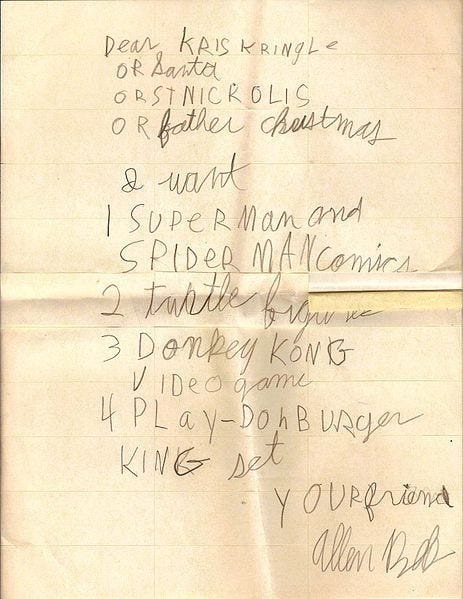 Dear KRIS KRINGLe
OR Santa
OR ST NICKOLIS
OR father christmas
I want
1 SUPeRMan and
SPIDeR MAN comics
2 turtle
3 DonKey KONG
VIDeo game
4 PLay-DohBURger
KING set
YOUR friend
Allen